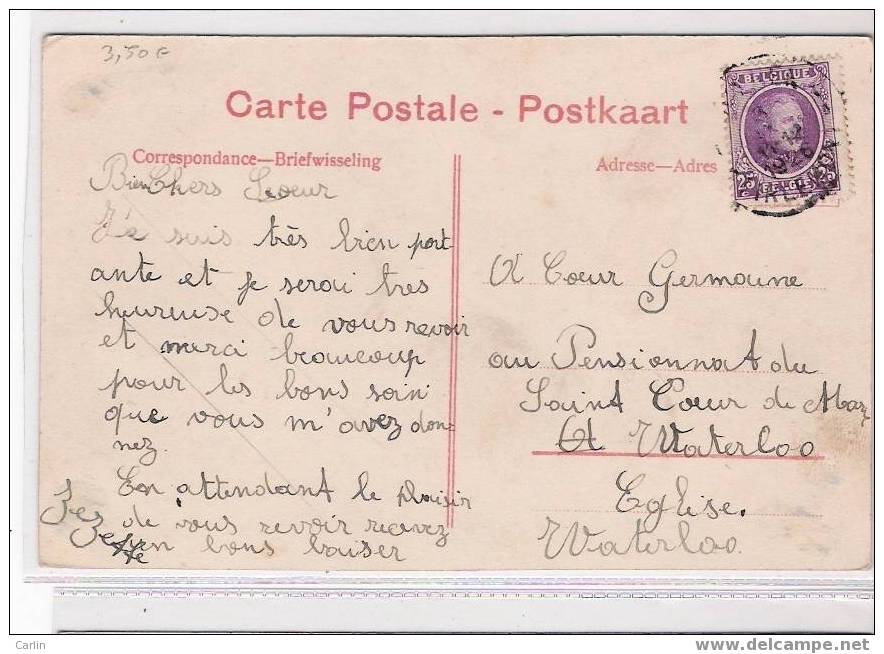 3,50 €
Carte Postale - Postkaart
Correspondance—Briefwisseling
Adresse—Adres
BELGIQUE
25 25
BELGIË
Bien Chers Soeur
J'e suis très bien port-
ante et je serai tres
heureuse de vous revoir
et merci beaucoup
pour les bons soin
que vous m'avez don-
nez.
En attendant le plaisir
de vous revoir recevez
un bons baiser
A Coeur Germaine
au Pensionnat du
Saint Cœur de Mary
A Waterloo
Eglise.
Waterloo.
Carlin
www.delcampe.net